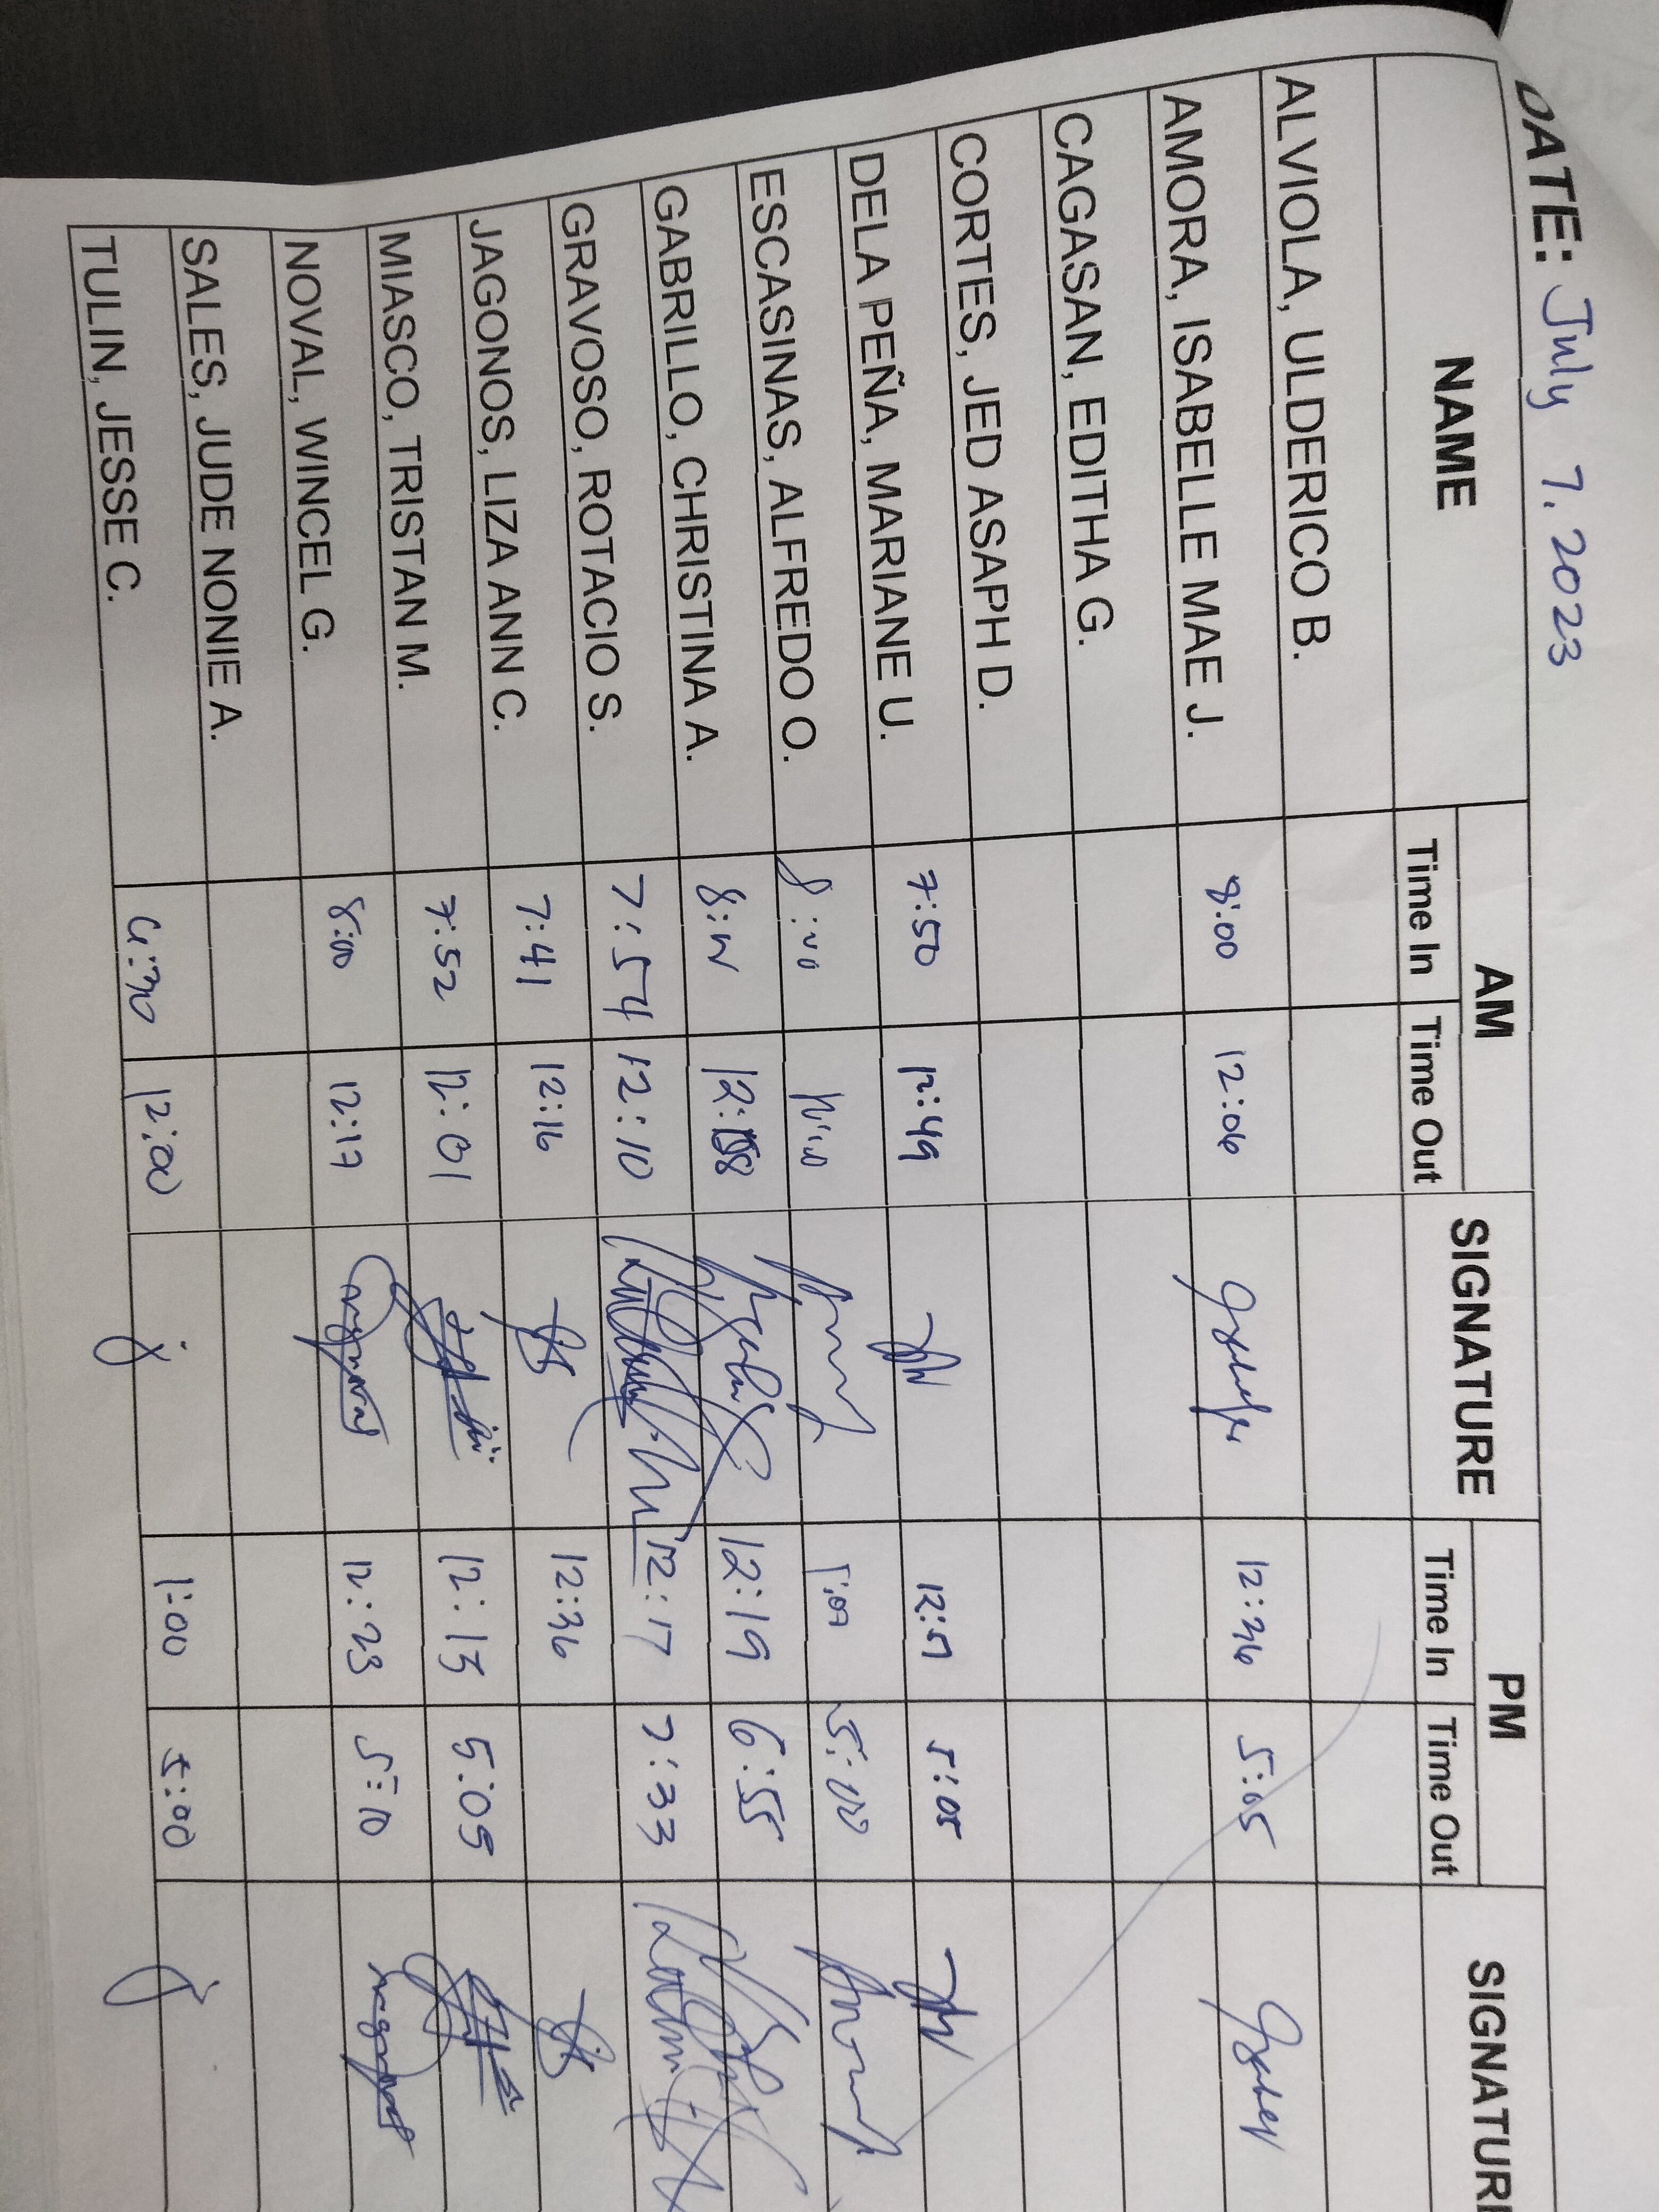 DATE: July 7, 2023
NAME AM SIGNATURE PM SIGNATUR
Time In Time Out Time In Time Out
ALVIOLA, ULDERICO B.
AMORA, ISABELLE MAE J. 8:00 12:06 12:36 5:05
CAGASAN, EDITHA G.
CORTES, JED ASAPH D.
DELA PEÑA, MARIANE U. 7:50 12:49 12:51 5:05
ESCASINAS, ALFREDO O. 8:00 5:00
GABRILLO, CHRISTINA A. 12:19 6:55
GRAVOSO, ROTACIO S. 7:54 12:10 12:17 7:33
JAGONOS, LIZA ANN C. 7:41 12:16 12:36
MIASCO, TRISTAN M. 7:52 12:01 12:15 5:05
NOVAL, WINCEL G. 8:00 12:17 12:23 5:10
SALES, JUDE NONIE A.
TULIN, JESSE C. 12:00 1:00 5:00